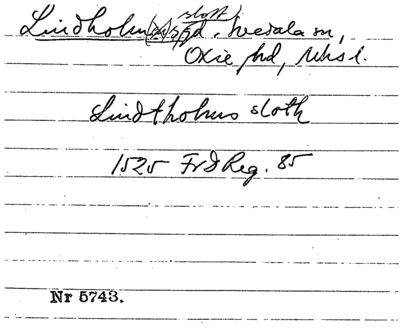 slott
Lindholm gd, Svedala sn,
Oxie hd, Mhsl.
Lindtholms sloth
1525 FrIReg. 85
Nr 5743.